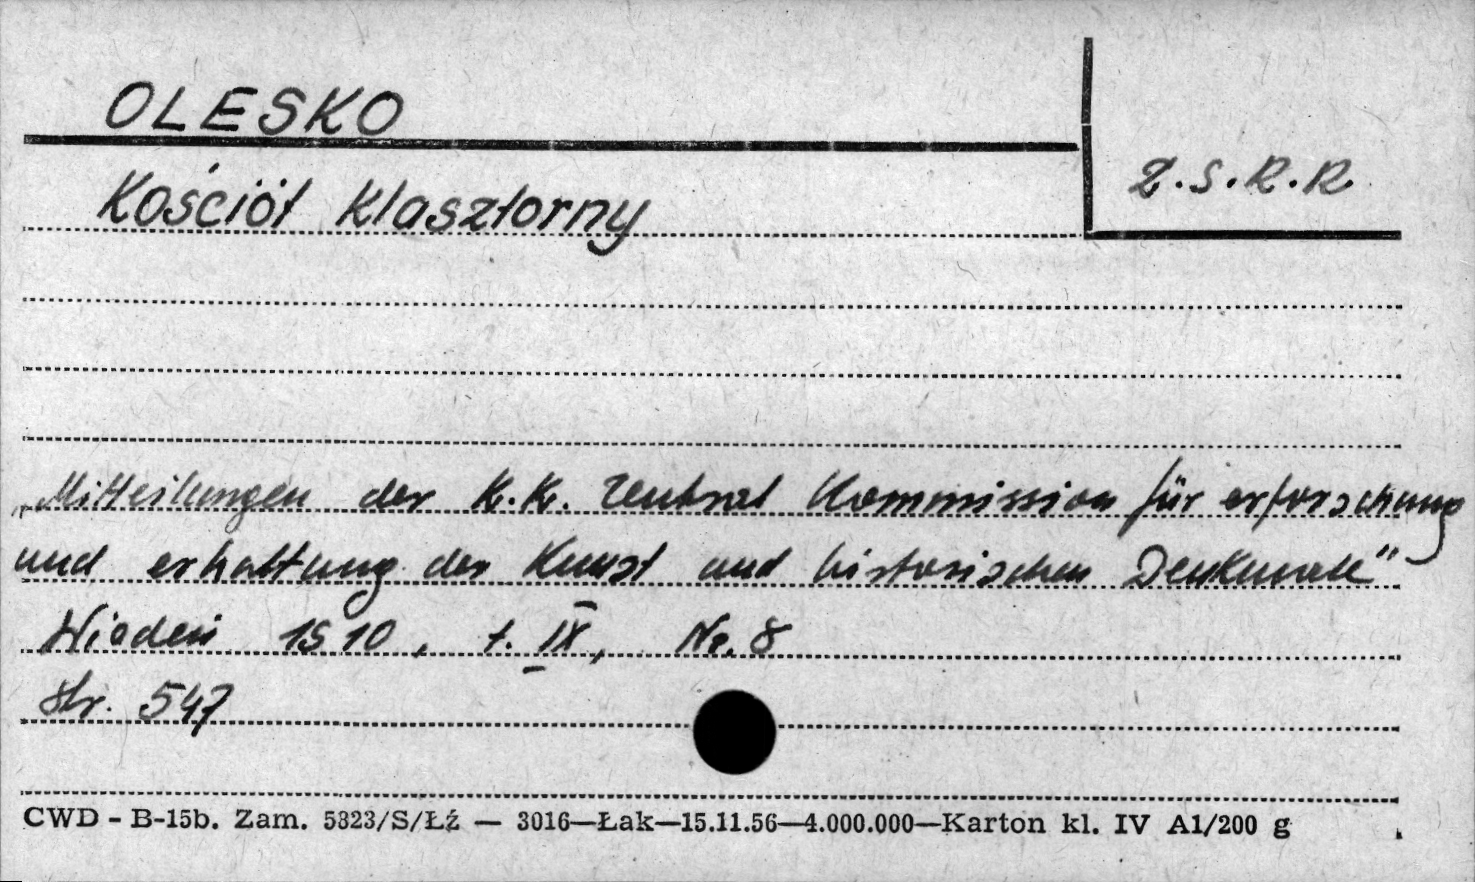 OLESKO
Z.S.R.R.
Kościół Klasztorny
„Mitteilungen der K.K. Zentral Kommission für erforschung
und erhaltung der Kunst und historischen Denkmale"
Wiedeń 1910, t. IX, Nr. 8
str. 547
CWD - B-15b. Zam. 5823/S/Łź — 3016—Łak—15.11.56—4.000.000—Karton kl. IV A1/200 g